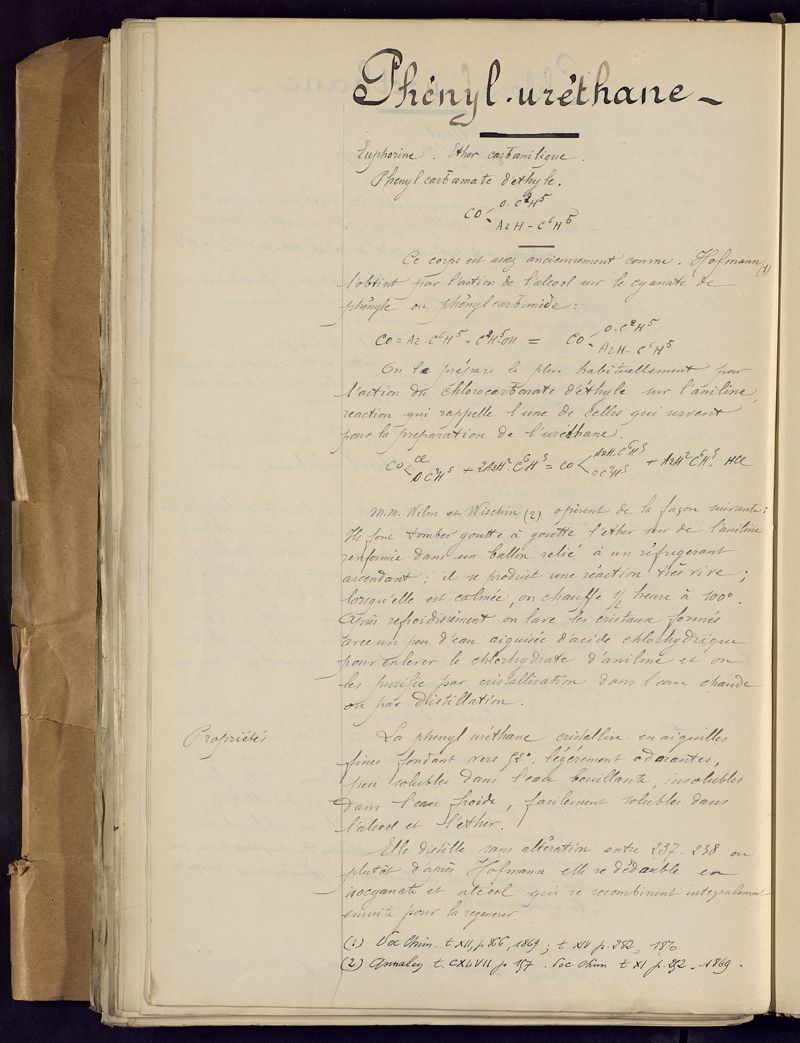 Phényl-uréthane -
Euphorine. Ether carbanilique.
Phényl carbamate d'éthyle.
CO < O-C²H⁵
AzH-C⁶H⁵
Ce corps est assez anciennement connu. Hofmann (1)
l'obtint par l'action de l'alcool sur le cyanate de
phényle ou phénylcarbimide :
CO = Az-C⁶H⁵ + C²H⁵OH = CO < O-C²H⁵
AzH-C⁶H⁵
On la prépare le plus habituellement par
l'action du chlorocarbonate d'éthyle sur l'aniline,
réaction qui rappelle l'une de celles qui servent
pour la préparation de l'uréthane.
CO < Cl
OC²H⁵ + 2AzH².C⁶H⁵ = CO < AzH.C⁶H⁵
OC²H⁵ + AzH²C⁶H⁵. HCl
M.M. Wilm et Wischin (2) opèrent de la façon suivante :
Ils font tomber goutte à goutte l'éther sur de l'aniline
renfermée dans un ballon relié à un réfrigérant
ascendant ; il se produit une réaction très vive ;
lorsqu'elle est calmée, on chauffe ½ heure à 100°.
Après refroidissement on lave les cristaux formés
avec un peu d'eau aiguisée d'acide chlorhydrique
pour enlever le chlorhydrate d'aniline et on
les purifie par cristallisation dans l'eau chaude
ou par distillation.
Propriétés
La phényl uréthane cristallise en aiguilles
fines fondant vers 52°, légèrement odorantes,
peu solubles dans l'eau bouillante, insolubles
dans l'eau froide, facilement solubles dans
l'alcool et l'éther.
Elle distille sans altération entre 237-238 ou
plutôt d'après Hofmann elle se dédouble en
isocyanate et alcool qui se recombinent intégralement
ensuite pour la regénérer
(1) Soc Chim. t XII, p. , 1869 ; t XIV p. 252,
(2) Annalen t. CXLVII p 157. Soc Chim t XI p. 252. 1869.